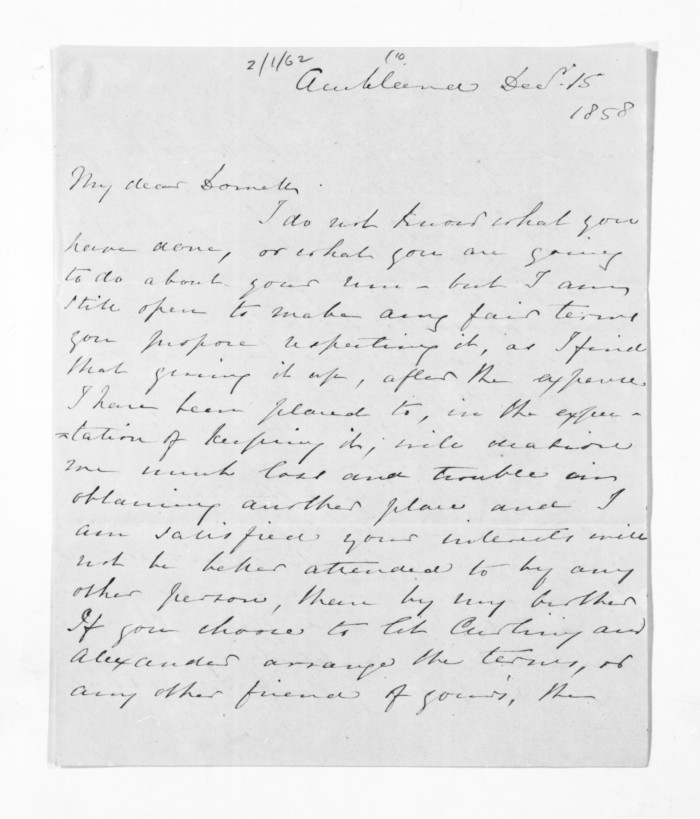 2/1/62 (10
Auckland Decr. 15
1858
My dear Domett
I do not know what you
have done, or what you are going
to do about your run - but I am
still open to make any fair terms
you propose respecting it, as I find
that giving it up, after the expense
I have been placed to, in the expec-
-tation of keeping it, will occasion
me much loss and trouble in
obtaining another place and I
am satisfied your interests will
not be better attended to by any
other person, than by my brother
If you choose to let Curling and
Alexander arrange the terms, or
any other friend of yours, the